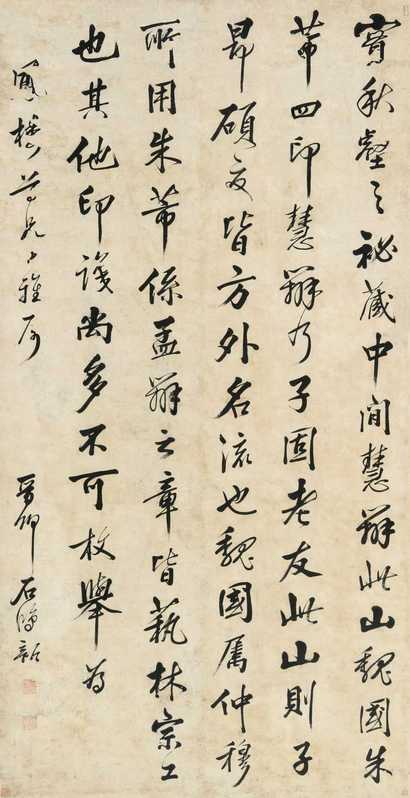 實秋壑之祕藏中間慧辯此山魏國朱
芾四印慧辯乃子固老友此山則子
昂碩交皆方外名流也魏國屬仲穆
所用朱芾係孟辯之章皆藝林宗工
也其他印識尚多不可枚舉為
鳳樓芍兄大雅屬
晉卿石